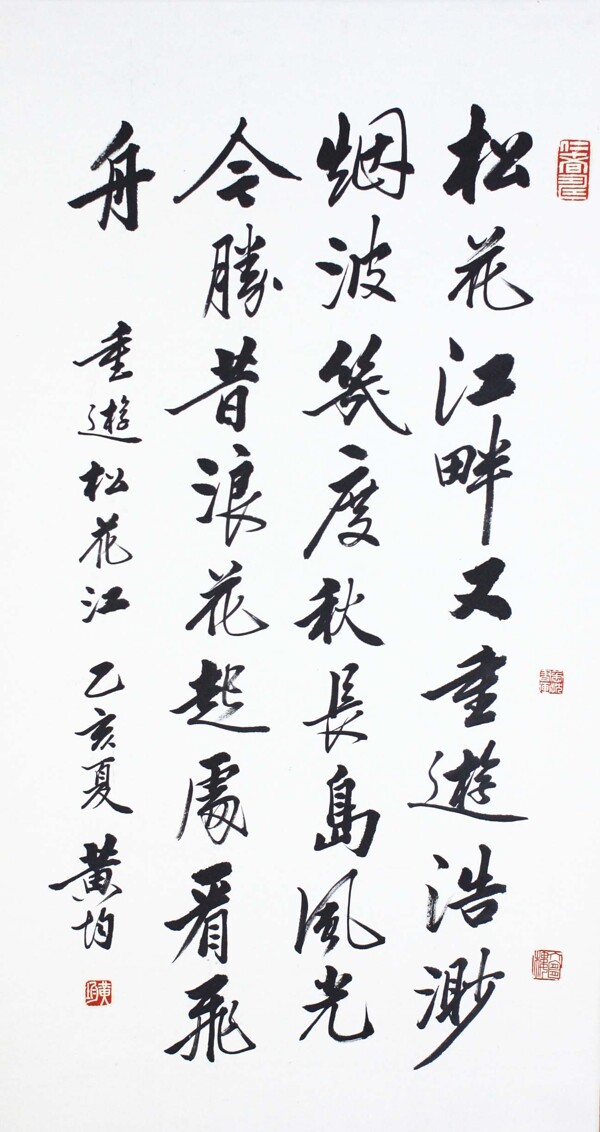 松花江畔又重遊浩渺
烟波幾度秋長島風光
今勝昔浪花起處看飛
舟
重遊松花江 乙亥夏 黄均
黄均